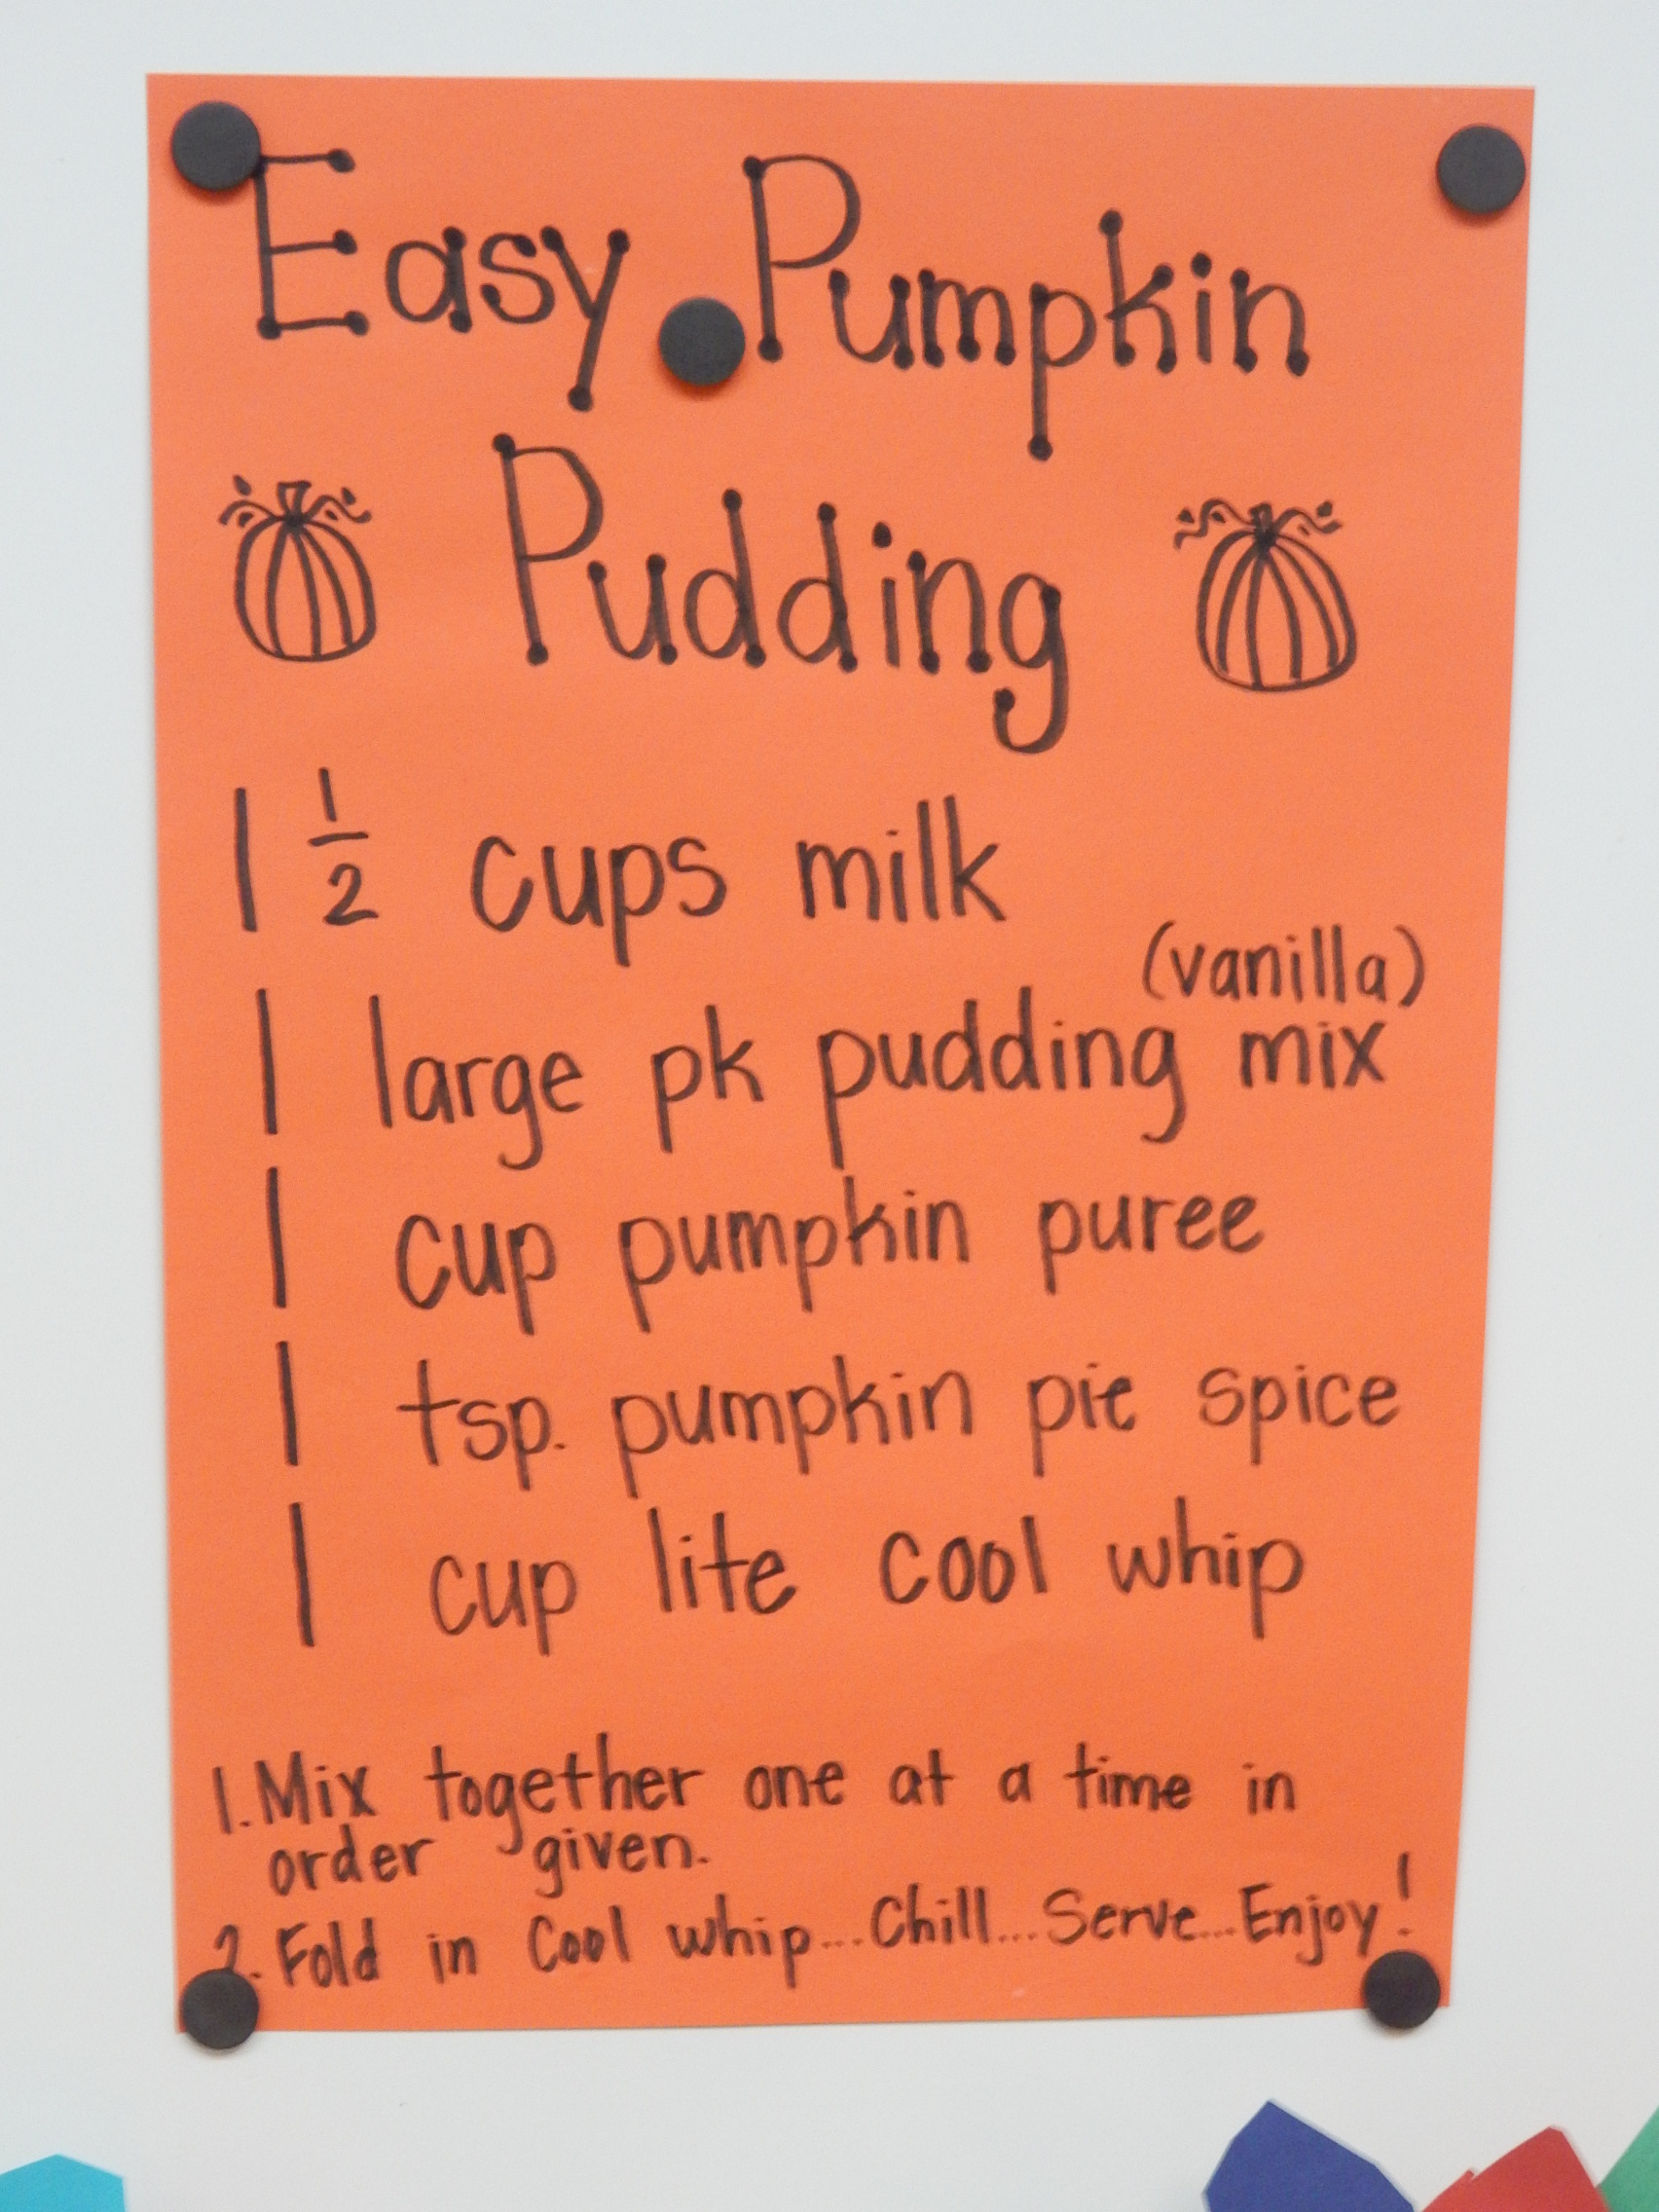 Easy Pumpkin
Pudding
1 1/2 cups milk
(vanilla)
1 large pk pudding mix
1 cup pumpkin puree
1 tsp. pumpkin pie spice
1 cup lite cool whip
1. Mix together one at a time in
order given.
2. Fold in Cool whip...Chill...Serve...Enjoy!